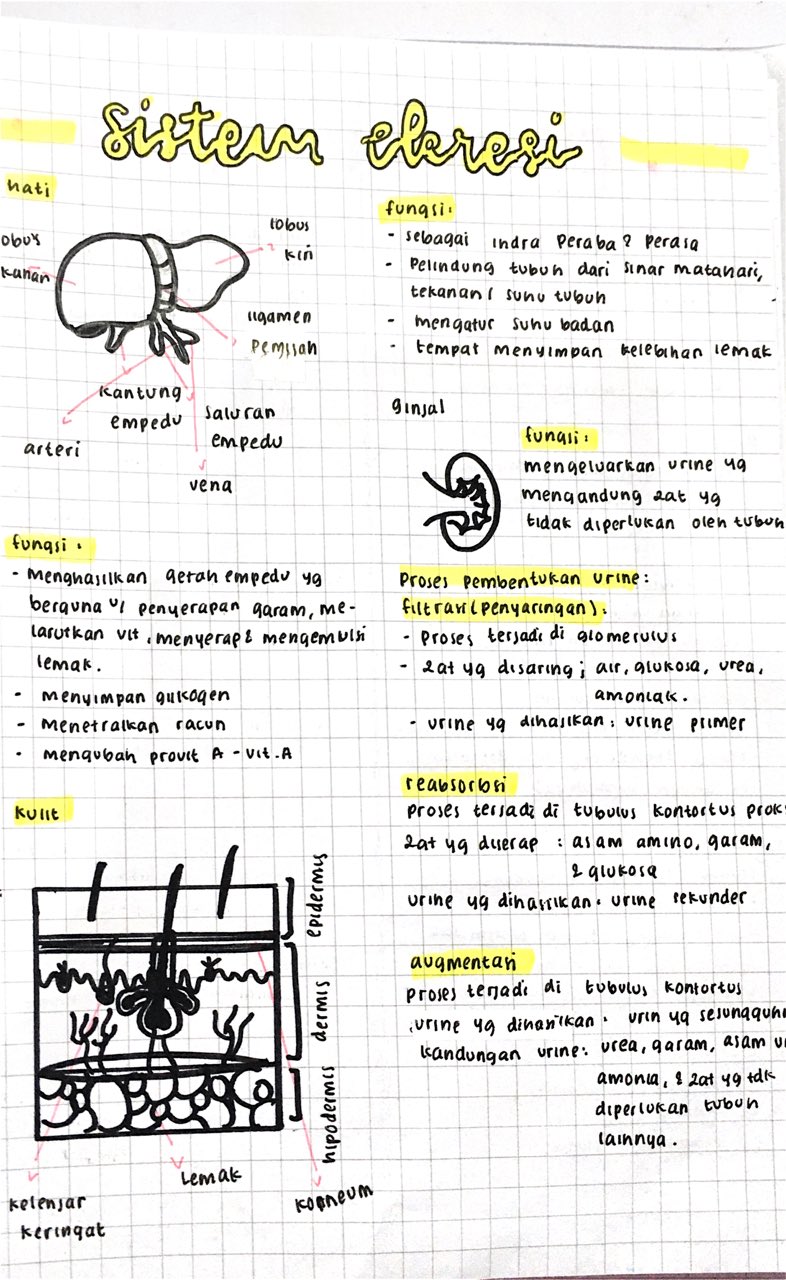 sistem ekresi
hati
lobus
kiri
obus
kanan
ligamen
pemisah
kantung
empedu
saluran
empedu
arteri
vena
fungsi :
- Menghasilkan getah empedu yg
berguna u/ penyerapan garam, me-
larutkan vit, menyerap & mengemulsi
lemak.
- menyimpan glikogen
- menetralkan racun
- mengubah provit A - vit.A
kulit
epidermis
dermis
hipodermis
lemak
kelenjar
keringat
korneum
fungsi:
- sebagai indra peraba & perasa
- Pelindung tubuh dari sinar matahari,
tekanan / suhu tubuh
- mengatur suhu badan
- tempat menyimpan kelebihan lemak
ginjal
fungsi :
mengeluarkan urine yg
mengandung zat yg
tidak diperlukan oleh tubuh
Proses pembentukan urine :
filtrasi (penyaringan) :
- Proses terjadi di glomerulus
- zat yg disaring ; air, glukosa, urea,
amoniak.
- urine yg dihasilkan : urine primer
reabsorbsi
proses terjadi di tubulus kontortus prok
zat yg diserap : asam amino, garam,
& glukosa
urine yg dihasilkan : urine sekunder
augmentasi
proses terjadi di tubulus kontortus
urine yg dihasilkan : urin yg sesungguhn
kandungan urine : urea, garam, asam u
amonia, & zat yg tdk
diperlukan tubuh
lainnya.